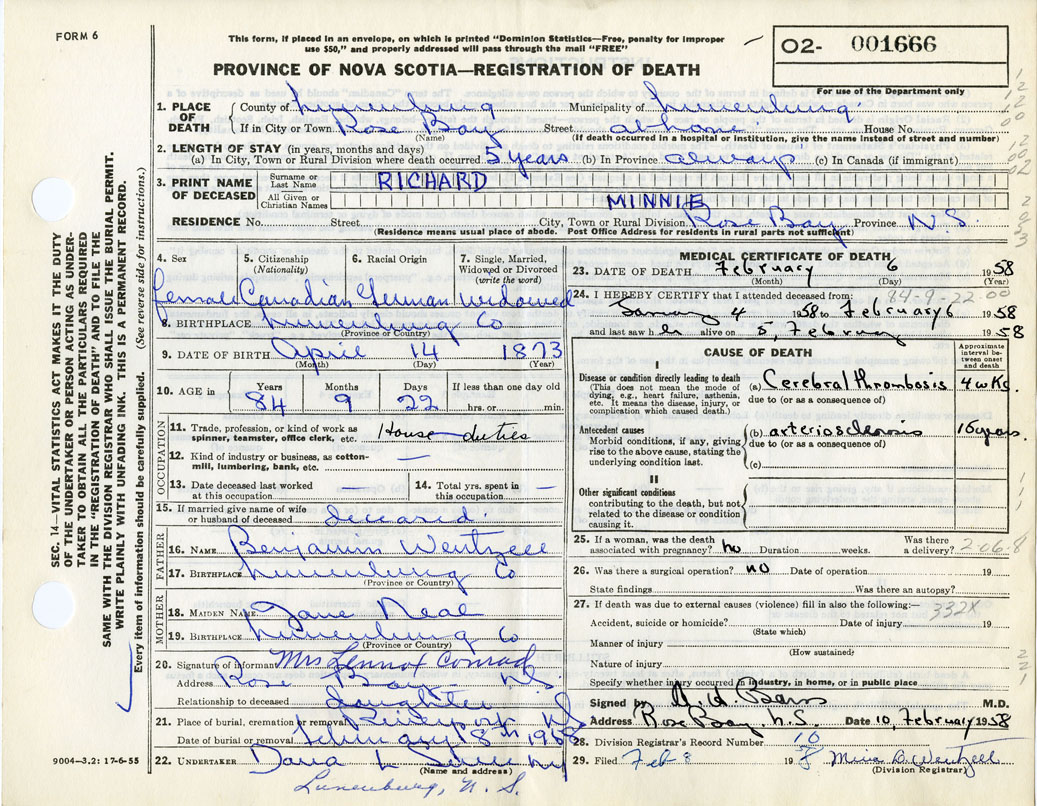 FORM 6
This form, if placed in an envelope, on which is printed "Dominion Statistics—Free, penalty for improper
use $50," and properly addressed will pass through the mail "FREE"
02- 001666
For use of the Department only
PROVINCE OF NOVA SCOTIA—REGISTRATION OF DEATH
1. PLACE OF DEATH
County of Lunenburg Municipality of Lunenburg
If in City or Town Rose Bay Street at home House No.
(Name) (If death occurred in a hospital or institution, give the name instead of street and number)
2. LENGTH OF STAY (in years, months and days)
(a) In City, Town or Rural Division where death occurred 5 years (b) In Province always (c) In Canada (if immigrant)
3. PRINT NAME OF DECEASED
Surname or Last Name RICHARD
All Given or Christian Names MINNIE
RESIDENCE No. Street City, Town or Rural Division Rose Bay Province N.S.
(Residence means usual place of abode. Post Office Address for residents in rural parts not sufficient)
4. Sex female
5. Citizenship (Nationality) Canadian
6. Racial Origin German
7. Single, Married, Widowed or Divorced (write the word) widowed
8. BIRTHPLACE Lunenburg Co
(Province or Country)
9. DATE OF BIRTH April 14 1873
(Month) (Day) (Year)
10. AGE in Years 84 Months 9 Days 22 If less than one day old hrs. or min.
OCCUPATION
11. Trade, profession, or kind of work as spinner, teamster, office clerk, etc. House duties
12. Kind of industry or business, as cotton-mill, lumbering, bank, etc. —
13. Date deceased last worked at this occupation —
14. Total yrs. spent in this occupation —
15. If married give name of wife or husband of deceased deceased.
FATHER
16. NAME Benjamin Wentzell
17. BIRTHPLACE Lunenburg Co
(Province or Country)
MOTHER
18. MAIDEN NAME Jane Neal
19. BIRTHPLACE Lunenburg Co
(Province or Country)
20. Signature of informant Mrs Lennox Conrad
Address Rose Bay NS
Relationship to deceased daughter
21. Place of burial, cremation or removal Riverport NS
Date of burial or removal February 8th 1958
22. UNDERTAKER Dana L NS
(Name and address)
Lunenburg, N. S.
MEDICAL CERTIFICATE OF DEATH
23. DATE OF DEATH February 6 1958
(Month) (Day) (Year)
84-9-22.00
24. I HEREBY CERTIFY that I attended deceased from:
January 4 1958 to February 6 1958
and last saw her alive on 5, February 1958
CAUSE OF DEATH
Approximate interval between onset and death
I
Disease or condition directly leading to death
(This does not mean the mode of dying, e.g., heart failure, asthenia, etc. It means the disease, injury, or complication which caused death.)
(a) Cerebral thrombosis 4 wks.
due to (or as a consequence of)
Antecedent causes
Morbid conditions, if any, giving rise to the above cause, stating the underlying condition last.
(b) arteriosclerosis 15 years.
due to (or as a consequence of)
(c)
II
Other significant conditions
contributing to the death, but not related to the disease or condition causing it.
25. If a woman, was the death associated with pregnancy? no Duration weeks. Was there a delivery?
2-06-8
26. Was there a surgical operation? no Date of operation 19
State findings Was there an autopsy?
27. If death was due to external causes (violence) fill in also the following:—
332X
Accident, suicide or homicide? Date of injury 19
(State which)
Manner of injury
(How sustained)
Nature of injury
Specify whether injury occurred in industry, in home, or in public place
Signed by M.D.
Address Rose Bay, N.S. Date 10, February 1958
28. Division Registrar's Record Number 10
29. Filed Feb 8 1958 Mina B Wentzell
(Division Registrar)
SEC. 14—VITAL STATISTICS ACT MAKES IT THE DUTY
OF THE UNDERTAKER OR PERSON ACTING AS UNDER-
TAKER TO OBTAIN ALL THE PARTICULARS REQUIRED
IN THE "REGISTRATION OF DEATH" AND TO FILE THE
SAME WITH THE DIVISION REGISTRAR WHO SHALL ISSUE THE BURIAL PERMIT.
WRITE PLAINLY WITH UNFADING INK. THIS IS A PERMANENT RECORD.
Every item of information should be carefully supplied. (See reverse side for instructions.)
9004—3.2: 17-6-55